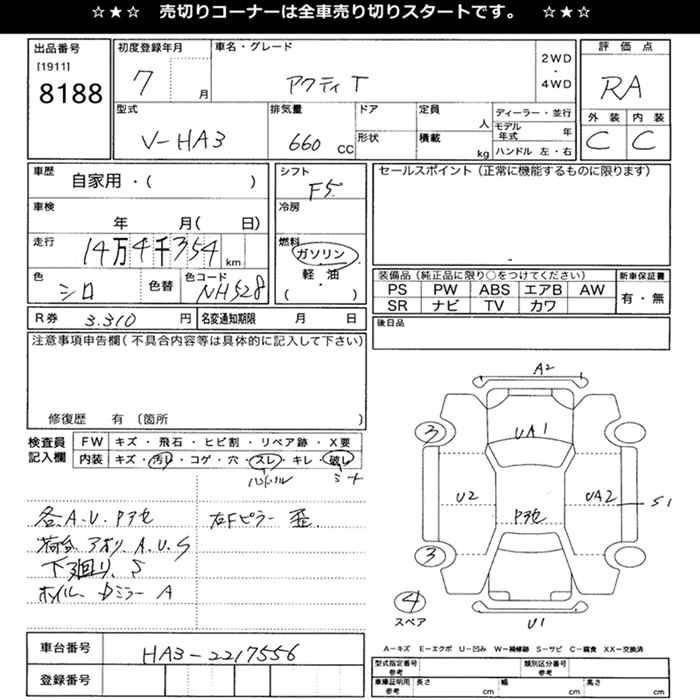 ☆★☆ 売切りコーナーは全車売り切りスタートです。 ☆★☆
出品番号 [1911] 8188
初度登録年月 7 月
車名・グレード アクティ T
2WD ・ 4WD
評価点 RA
外装 内装
C C
型式 V-HA3
排気量 660 CC
ドア
形状
定員 人
積載 kg
ディーラー・並行
モデル年式 年
ハンドル 左・右
車歴 自家用・( )
車検 年 月( 日)
走行 14万4千354 km
色 シロ
色替
色コード NH528
シフト F5
冷房
燃料 ガソリン
軽・油
( )
セールスポイント(正常に機能するものに限ります)
装備品(純正品に限り○をつけてください)
PS PW ABS エアB AW
SR ナビ TV カワ
新車保証書
有・無
R券 3.310 円
名変通知期限 月 日
後日品
注意事項申告欄(不具合内容等は具体的に記入して下さい)
修復歴 有 (箇所 )
検査員記入欄
FW キズ・飛石・ヒビ割・リペア跡・X要
内装 キズ・汚レ・コゲ・穴・スレ・キレ・破レ
ハンドル シート
各A.U.Pアセ 右Fピラー 歪
荷台 アオリ A.U.S
下廻り. S
ホイル、Dミラー A
A2
3
UA1
U2
Pアセ
UA2
S1
3
4
スペア
U1
A-キズ E-エクボ U-凹み W-補修跡 S-サビ C-腐食 XX-交換済
車台番号 HA3-2217556
登録番号
型式指定番号 参考
類別区分番号 参考
車庫証明用 参考 長さ cm 幅 cm 高さ cm